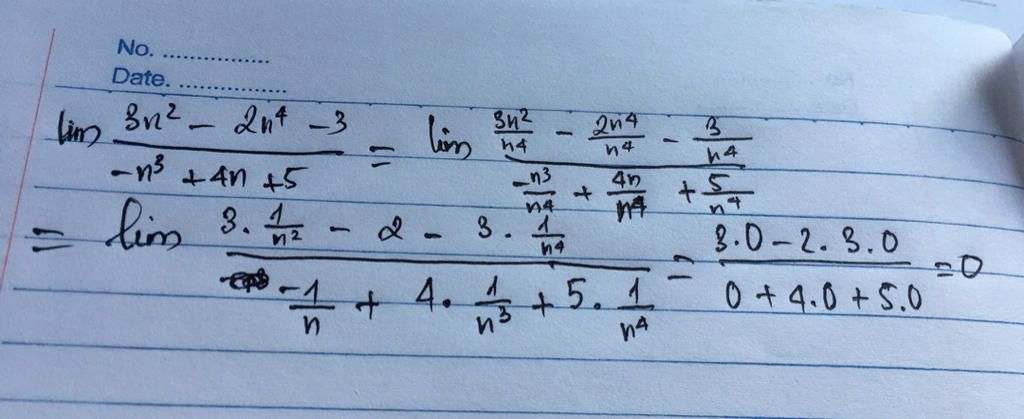 No. ................
Date. ................
lim (3n² - 2n⁴ - 3)/(-n³ + 4n + 5) = lim (3n²/n⁴ - 2n⁴/n⁴ - 3/n⁴)/(-n³/n⁴ + 4n/n⁴ + 5/n⁴)
= lim (3. 1/n² - 2 - 3. 1/n⁴)/(-1/n + 4. 1/n³ + 5. 1/n⁴) = (3.0 - 2. 3.0)/(0 + 4.0 + 5.0) = 0